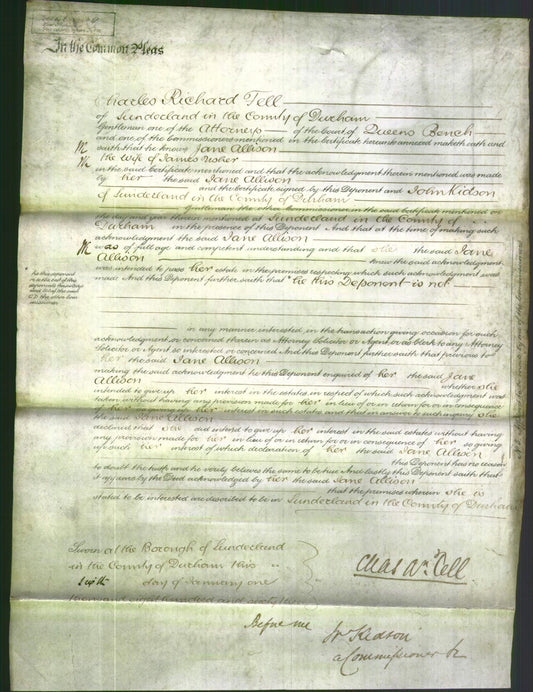 In the Common Pleas
Charles Richard Tell
of Sunderland in the County of Durham
Gentleman one of the Attorneys of the Court of Queens Bench
and one of the Commissioners mentioned in the Certificate hereunto annexed maketh oath and
saith that he knows Jane Allison
the wife of James
in the said Certificate mentioned and that the acknowledgment therein mentioned was made
by her the said Jane Allison
and the Certificate signed by this Deponent and John Kidson
of Sunderland in the County of Durham
Gentleman the other Commissioner in the said Certificate mentioned on
the day and year therein mentioned at Sunderland in the County of
Durham in the presence of this Deponent And that at the time of making such
acknowledgment the said Jane Allison
was of full age and competent understanding and that she the said Jane
Allison knew the said acknowledgment
was intended to pass her estate in the premises respecting which such acknowledgment was
made And this Deponent further saith that he this Deponent is not
in any manner interested in the transaction giving occasion for such
acknowledgment or concerned therein as Attorney Solicitor or Agent or as Clerk to any Attorney
Solicitor or Agent so interested or concerned And this Deponent further saith that previous to
her the said Jane Allison
making the said acknowledgment he this Deponent enquired of her the said Jane
Allison whether she
intended to give up her interest in the estates in respect of which such acknowledgment was
taken without having any provision made for her in lieu of or in return for or in consequence
of her so giving up her interest in such estates and that in answer to such inquiry she
the said Jane Allison
declared that she did intend to give up her interest in the said estates without having
any provision made for her in lieu of or in return for or in consequence of her so giving
up such her interest of which declaration of her the said Jane Allison
this Deponent has no reason
to doubt the truth and he verily believes the same to be true And lastly this Deponent saith that
it appears by the Deed acknowledged by her the said Jane Allison
that the premises wherein she is
stated to be interested are described to be in Sunderland in the County of Durham
Sworn at the Borough of Sunderland
in the County of Durham this
day of January one
thousand eight hundred and sixty
Before me
Chas Rd. Tell
Jn Kidson
a Commissioner &c